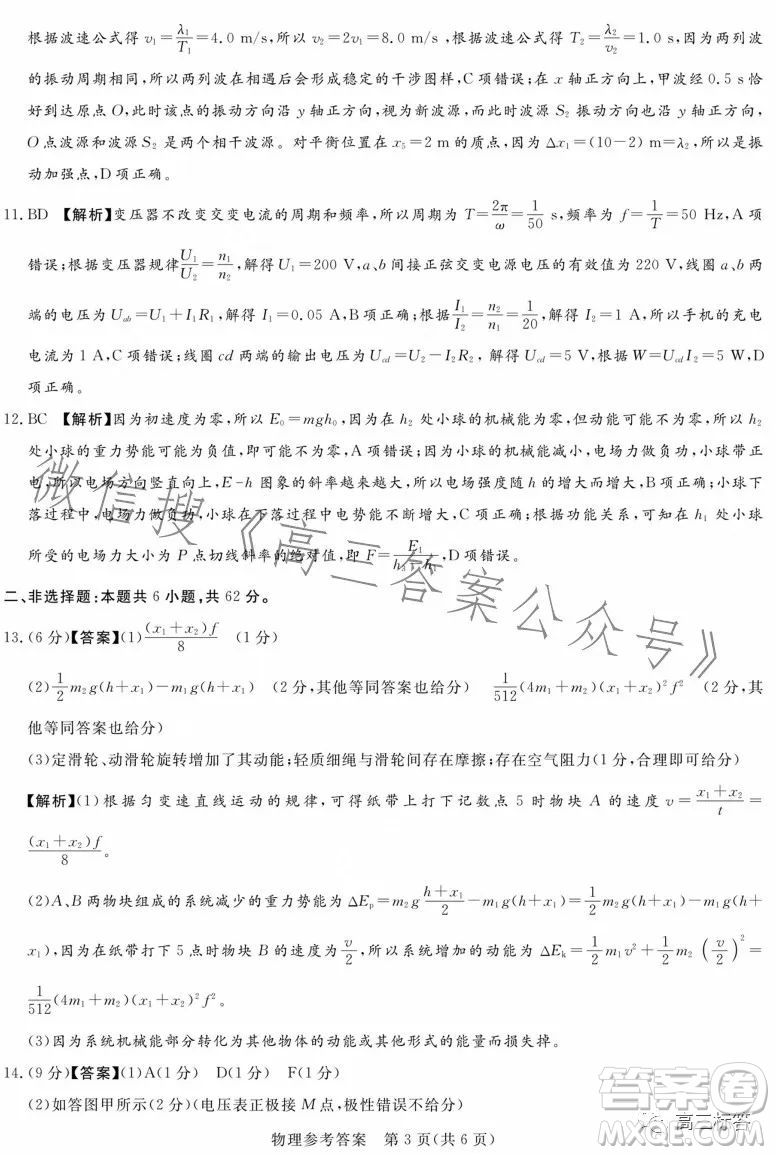 根据波速公式得 v₁=λ₁/T₁=4.0 m/s,所以 v₂=2v₁=8.0 m/s,根据波速公式得 T₂=λ₂/v₂=1.0 s,因为两列波
的振动周期相同,所以两列波在相遇后会形成稳定的干涉图样,C 项错误;在 x 轴正方向上,甲波经 0.5 s 恰
好到达原点 O,此时该点的振动方向沿 y 轴正方向,视为新波源,而此时波源 S₂ 振动方向也沿 y 轴正方向,
O 点波源和波源 S₂ 是两个相干波源。对平衡位置在 x₅=2 m 的质点,因为 Δx₁=(10-2) m=λ₂,所以是振
动加强点,D 项正确。
11.BD 【解析】变压器不改变交变电流的周期和频率,所以周期为 T=2π/ω=1/50 s,频率为 f=1/T=50 Hz,A 项
错误;根据变压器规律U₁/U₂=n₁/n₂,解得 U₁=200 V,a、b 间接正弦交变电源电压的有效值为 220 V,线圈 a、b 两
端的电压为 Uab=U₁+I₁R₁,解得 I₁=0.05 A,B 项正确;根据I₁/I₂=n₂/n₁=1/20,解得 I₂=1 A,所以手机的充电
电流为 1 A,C 项错误;线圈 cd 两端的输出电压为 Ucd=U₂-I₂R₂,解得 Ucd=5 V,根据 W=UcdI₂=5 W,D
项正确。
12.BC 【解析】因为初速度为零,所以 E₀=mgh₀,因为在 h₂ 处小球的机械能为零,但动能可能不为零,所以 h₂
处小球的重力势能可能为负值,即可能不为零,A 项错误;因为小球的机械能减小,电场力做负功,小球带正
电,所以电场方向竖直向上,E-h 图象的斜率越来越大,所以电场强度随 h 的增大而增大,B 项正确;小球下
落过程中,电场力做负功,小球在下落过程中电势能不断增大,C 项正确;根据功能关系,可知在 h₁ 处小球
所受的电场力大小为 P 点切线斜率的绝对值,即 F=E₁/h₃-h₁,D 项错误。
二、非选择题:本题共 6 小题,共 62 分。
13.(6 分)【答案】(1)(x₁+x₂)f/8 (1 分)
(2)1/2m₂g(h+x₁)-m₁g(h+x₁) (2 分,其他等同答案也给分) 1/512(4m₁+m₂)(x₁+x₂)²f² (2 分,其
他等同答案也给分)
(3)定滑轮、动滑轮旋转增加了其动能;轻质细绳与滑轮间存在摩擦;存在空气阻力(1 分,合理即可给分)
【解析】(1)根据匀变速直线运动的规律,可得纸带上打下记数点 5 时物块 A 的速度 v=x₁+x₂/t=
(x₁+x₂)f/8。
(2)A、B 两物块组成的系统减少的重力势能为 ΔEp=m₂g h+x₁/2-m₁g(h+x₁)=1/2m₂g(h+x₁)-m₁g(h+
x₁),因为在纸带打下 5 点时物块 B 的速度为v/2,所以系统增加的动能为 ΔEk=1/2m₁v²+1/2m₂(v/2)²=
1/512(4m₁+m₂)(x₁+x₂)²f²。
(3)因为系统机械能部分转化为其他物体的动能或其他形式的能量而损失掉。
14.(9 分)【答案】(1)A(1 分) D(1 分) F(1 分)
(2)如答图甲所示(2 分)(电压表正极接 M 点,极性错误不给分)
物理参考答案 第 3 页(共 6 页)
微信搜《高三答案公众号》
高三标答
答案圈
MXQE.COM